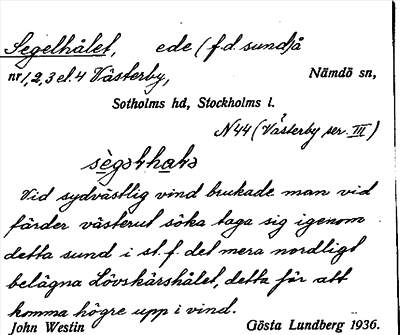 Segelhålet, ede (f.d. sund) å
nr 1,2,3 el. 4 Västerby, Nämdö sn,
Sotholms hd, Stockholms l.
N44 (Västerby ser. III)
Vid sydvästlig vind brukade man vid
färder västerut söka taga sig igenom
detta sund i st. f. det mera nordligt
belägna Lövskärshålet, detta för att
komma högre upp i vind.
John Westin Gösta Lundberg 1936.